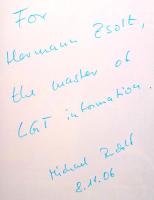 For
Hermann Zsolt,
the master of
LGT information.
Michael
8.11.06